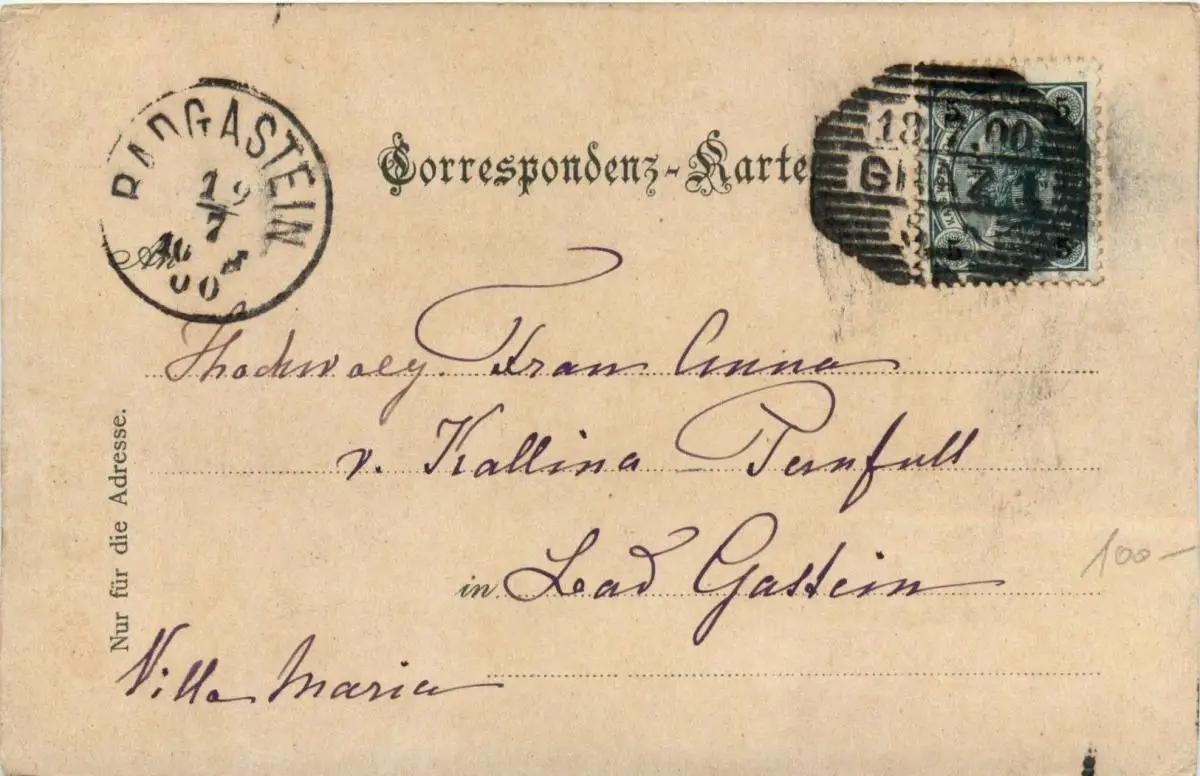 BADGASTEIN
19
7
00
Correspondenz-Karte
18 7 00
5 5
5 5
Hochwolg. Frau Anna
v. Kallina
in Bad Gastein
Villa Maria
Nur für die Adresse.
100-